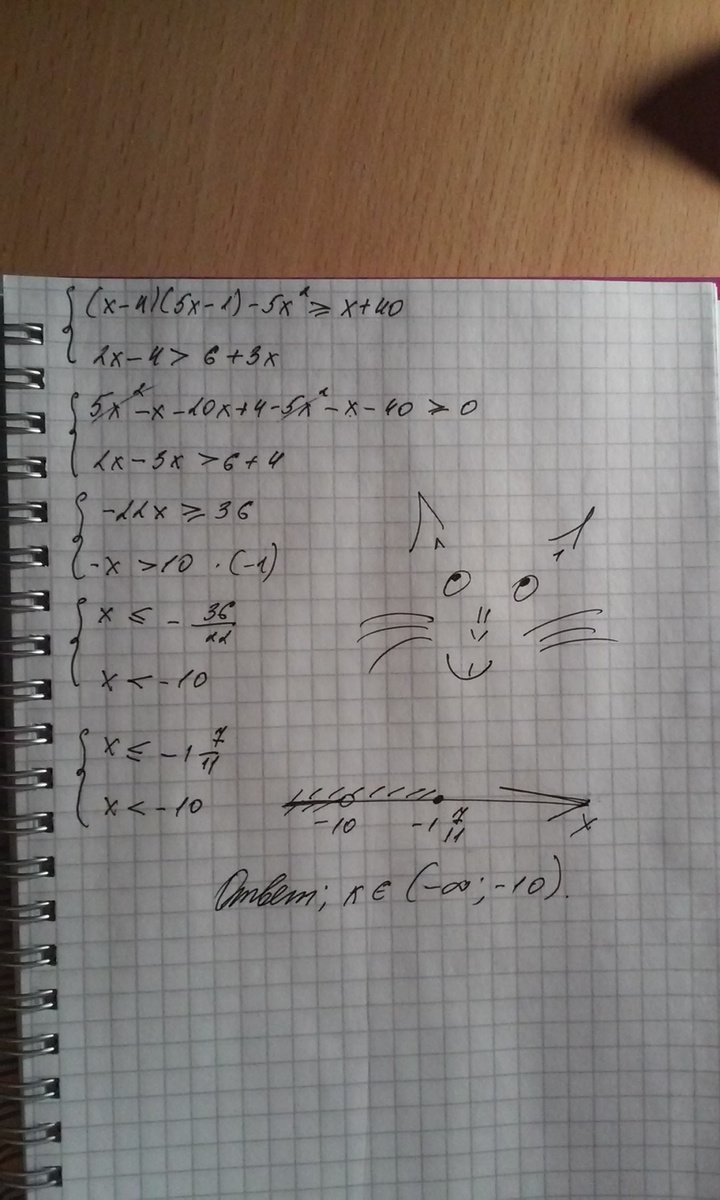 { (x-4)(5x-1)-5x² ≥ x+40
2x-4 > 6+3x
{ 5x²-x-20x+4-5x²-x-40 ≥ 0
2x-3x > 6+4
{ -22x ≥ 36
-x > 10 · (-1)
{ x ≤ - 36/22
x < -10
{ x ≤ -1 7/11
x < -10
-10 -1 7/11 x
Ответ; x ∈ (-∞; -10).